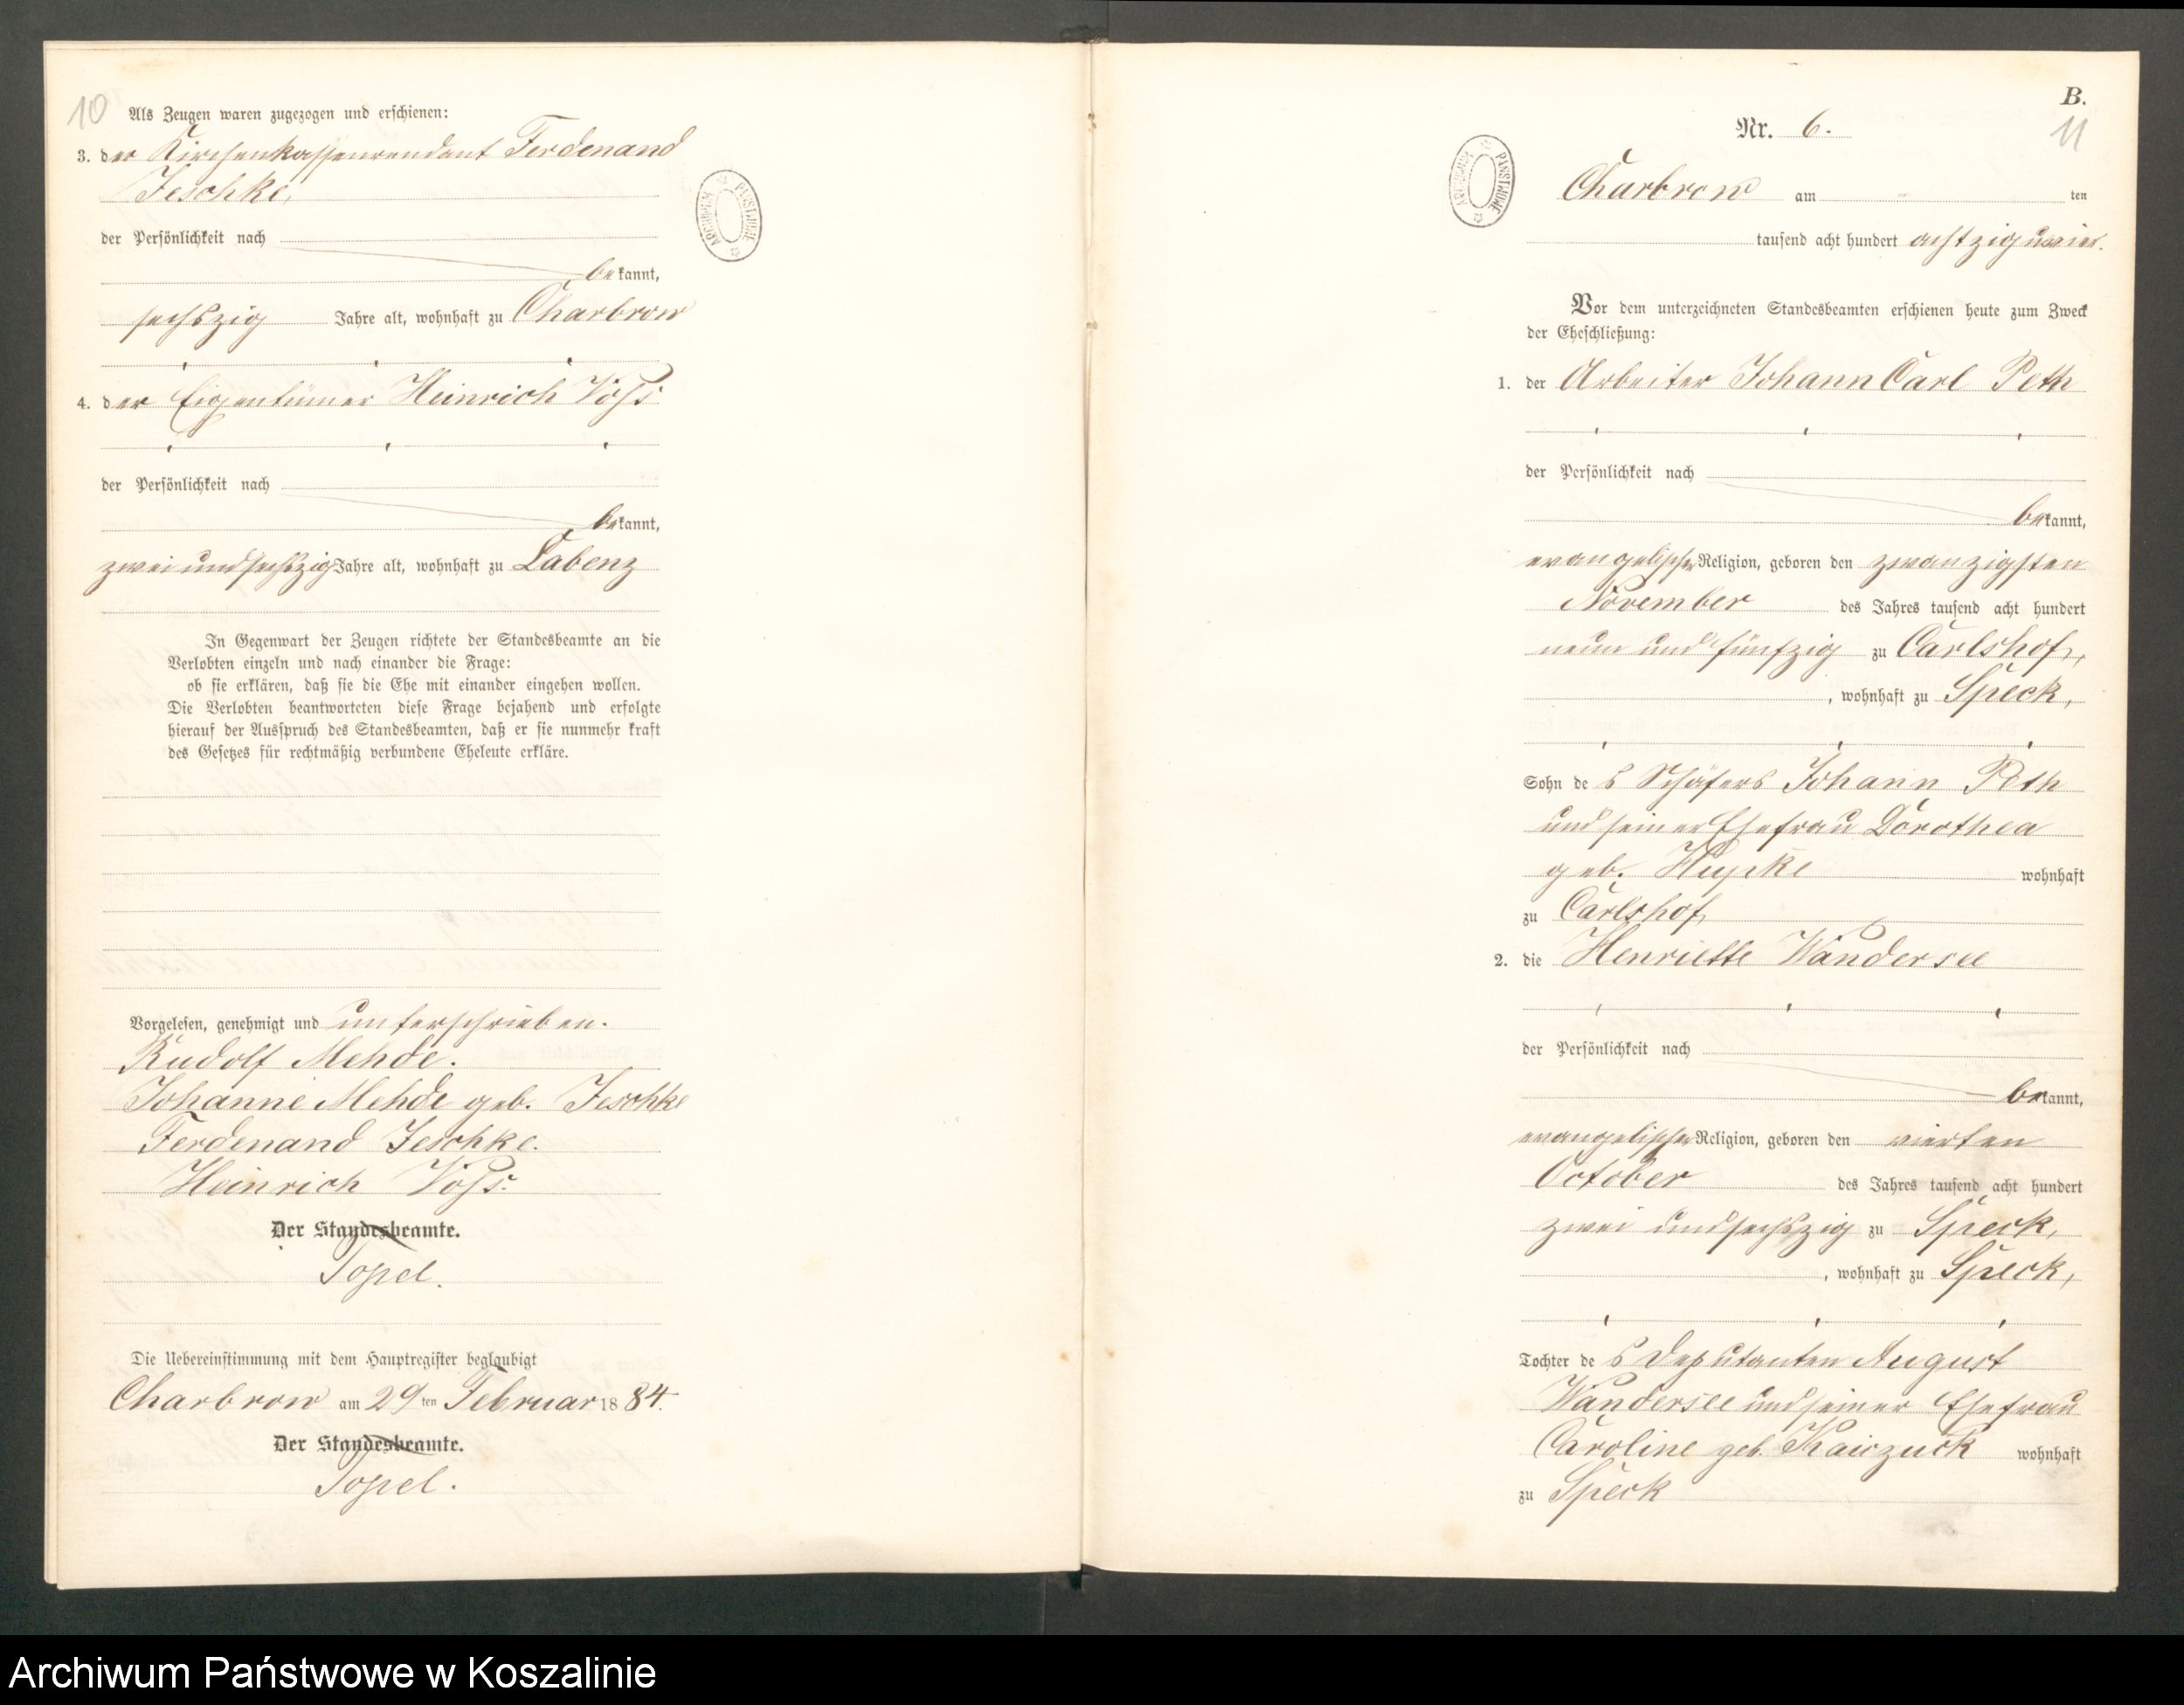 10
Als Zeugen waren zugezogen und erschienen:
3. der Kirchenkassenrendant Ferdenand
Jeschke,
der Persönlichkeit nach
bekannt,
sechszig Jahre alt, wohnhaft zu Charbrow
4. der Eigentümer Heinrich Voß
der Persönlichkeit nach
bekannt,
zwei und sechszig Jahre alt, wohnhaft zu Labenz
In Gegenwart der Zeugen richtete der Standesbeamte an die
Verlobten einzeln und nach einander die Frage:
ob sie erklären, daß sie die Ehe mit einander eingehen wollen.
Die Verlobten beantworteten diese Frage bejahend und erfolgte
hierauf der Ausspruch des Standesbeamten, daß er sie nunmehr kraft
des Gesetzes für rechtmäßig verbundene Eheleute erkläre.
Vorgelesen, genehmigt und unterschrieben.
Rudolf Mehde.
Johanne Mehde geb. Jeschke
Ferdenand Jeschke.
Heinrich Voß.
Der Standesbeamte.
Topel.
Die Uebereinstimmung mit dem Hauptregister beglaubigt
Charbrow am 29 ten Februar 18 84.
Der Standesbeamte.
Topel.
ARCHIWUM PAŃSTWOWE
B.
11
Nr. 6.
ARCHIWUM PAŃSTWOWE
Charbrow am ten
tausend acht hundert achtzig u. vier.
Vor dem unterzeichneten Standesbeamten erschienen heute zum Zweck
der Eheschließung:
1. der Arbeiter Johann Carl Peth
der Persönlichkeit nach
bekannt,
evangelischer Religion, geboren den zwanzigsten
November des Jahres tausend acht hundert
neun und fünfzig zu Carlshof,
, wohnhaft zu Speck,
Sohn des Schäfers Johann Peth
und seiner Ehefrau Dorothea
geb. wohnhaft
zu Carlshof
2. die Henriette Wandersee
der Persönlichkeit nach
bekannt,
evangelischer Religion, geboren den vierten
October des Jahres tausend acht hundert
zwei und sechszig zu Speck,
, wohnhaft zu Speck,
Tochter des Deputanten August
Wandersee und seiner Ehefrau
Caroline geb. wohnhaft
zu Speck
Archiwum Państwowe w Koszalinie